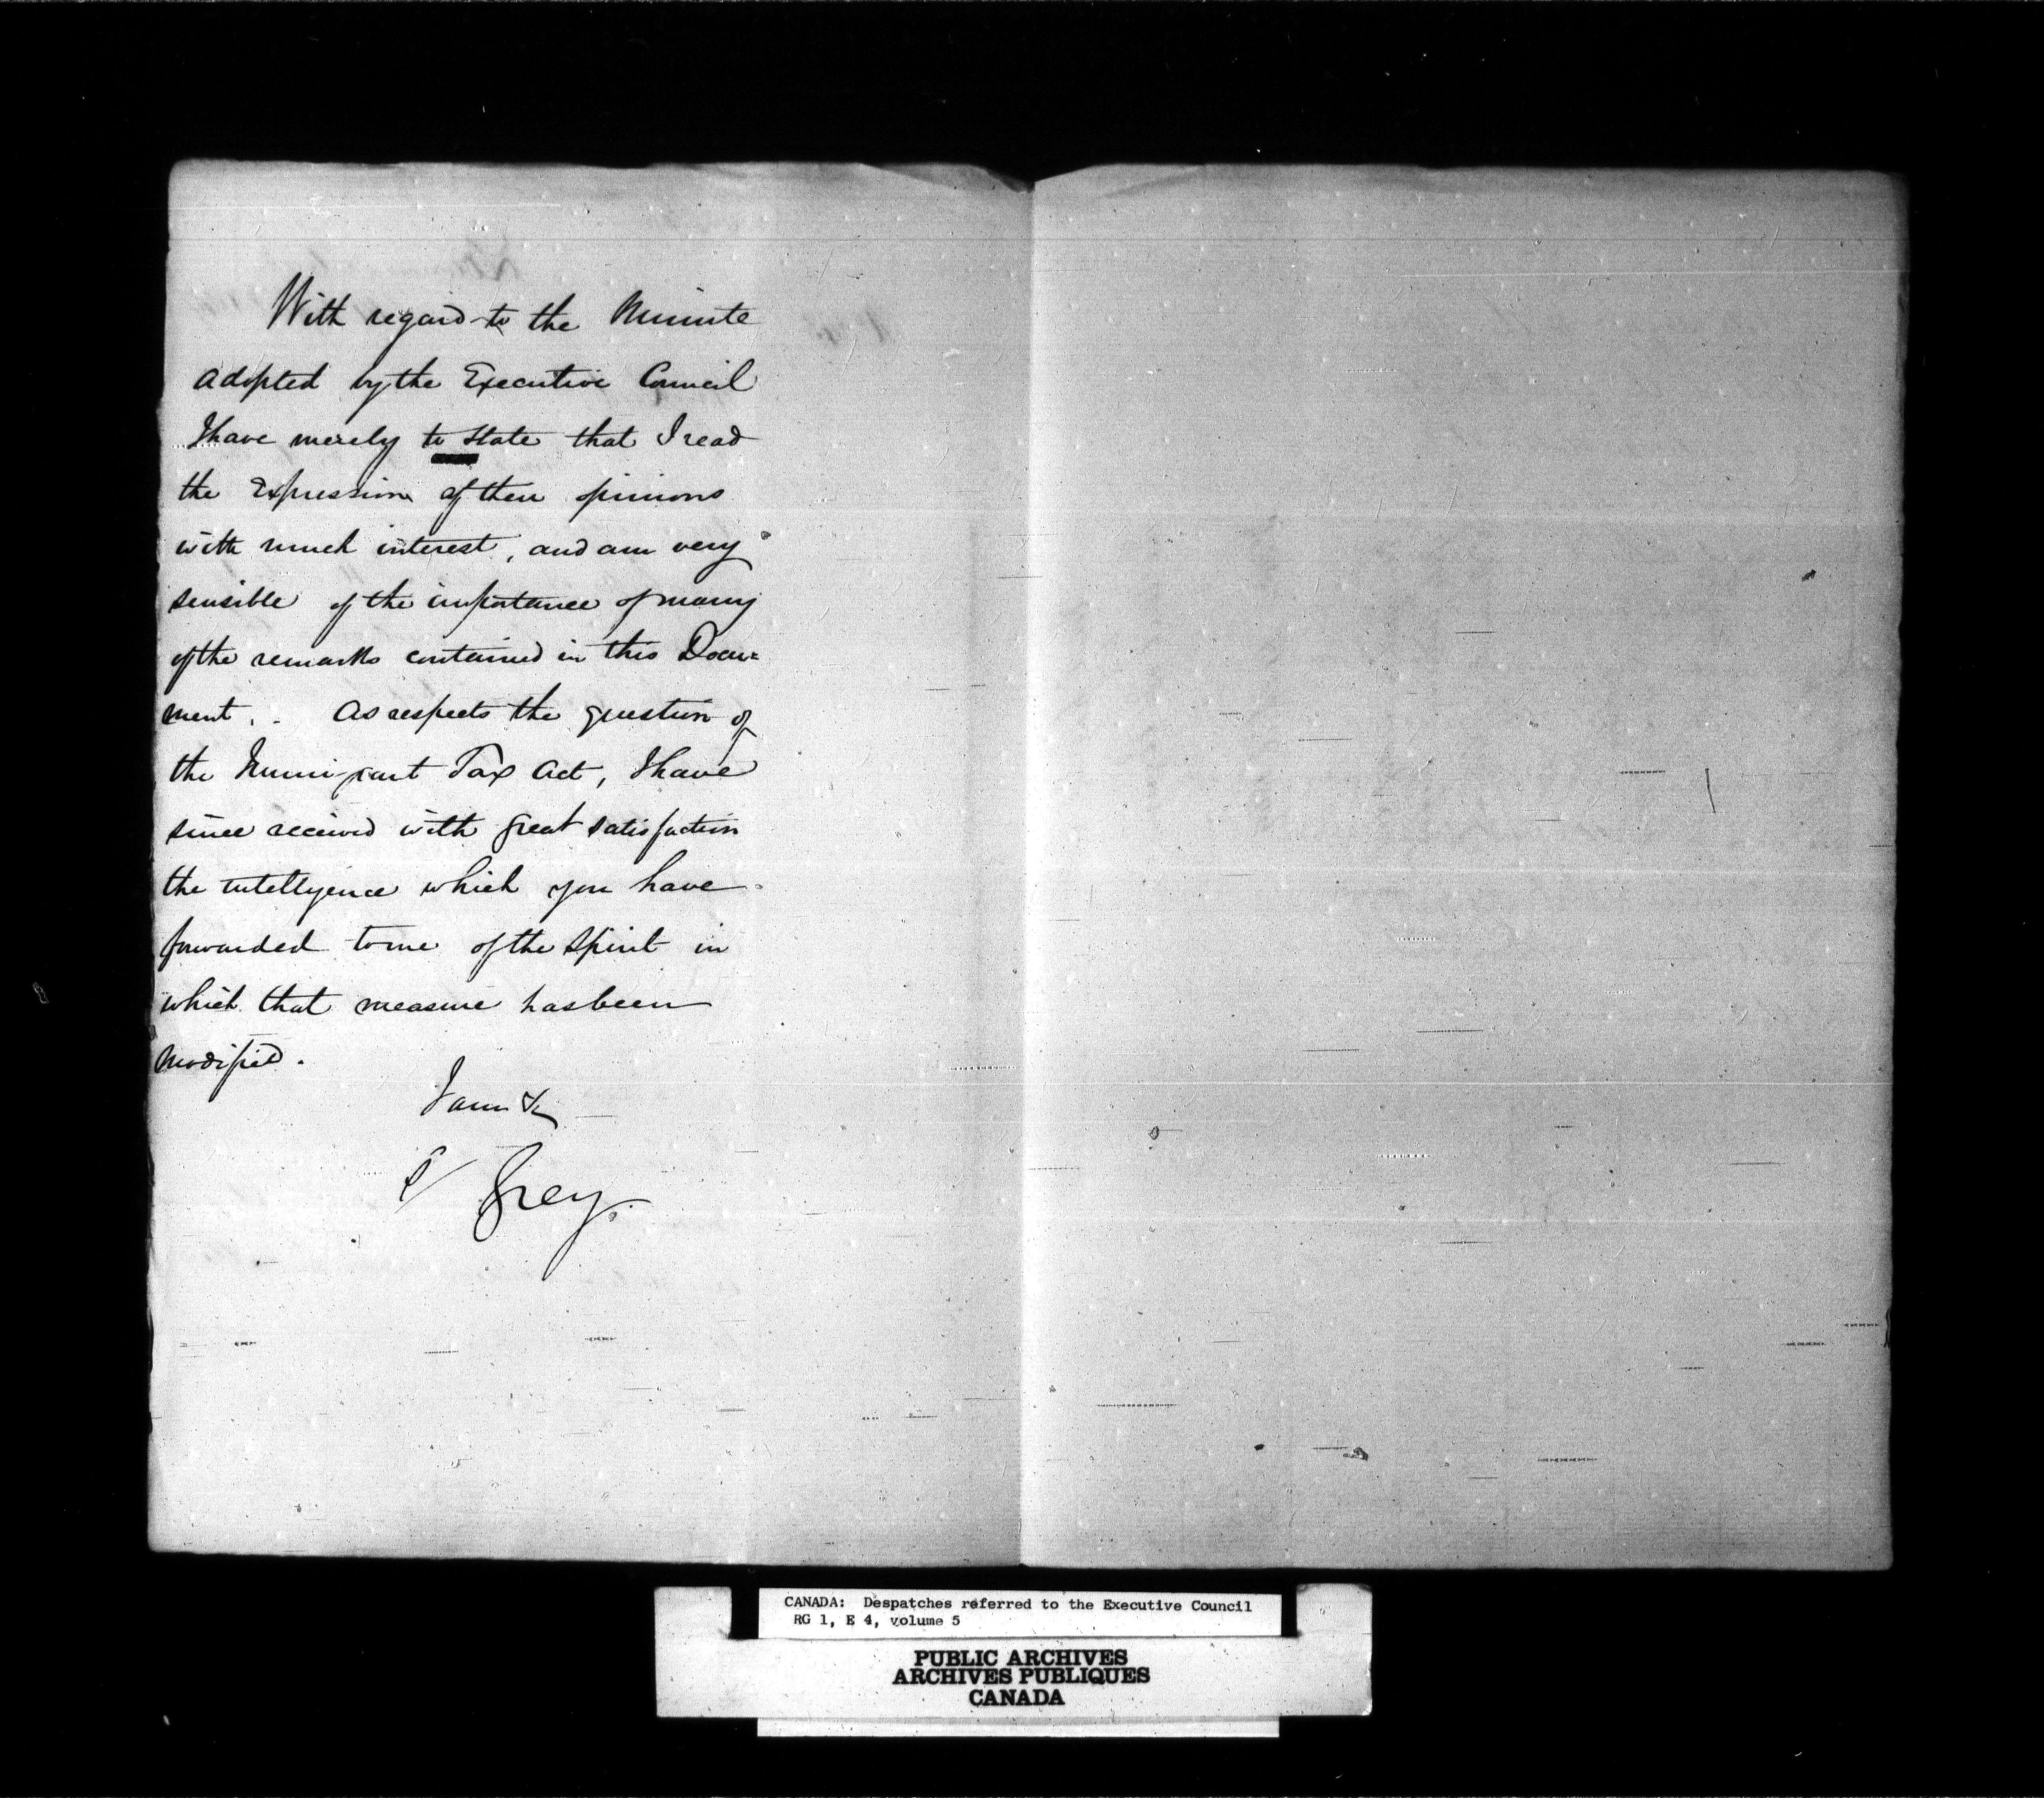 With regard to the Minute
adopted by the Executive Council
I have merely to state that I read
the Expression of their opinions
with much interest, and am very
sensible of the importance of many
of the remarks contained in this Docu=
ment. . As respects the question of
the Immigrant Tax Act, I have
since received with great satisfaction
the intelligence which you have
forwarded to me of the Spirit in
which that measure has been
modified.
I am &c
S/ Grey.
CANADA: Despatches referred to the Executive Council
RG 1, E 4, volume 5
PUBLIC ARCHIVES
ARCHIVES PUBLIQUES
CANADA